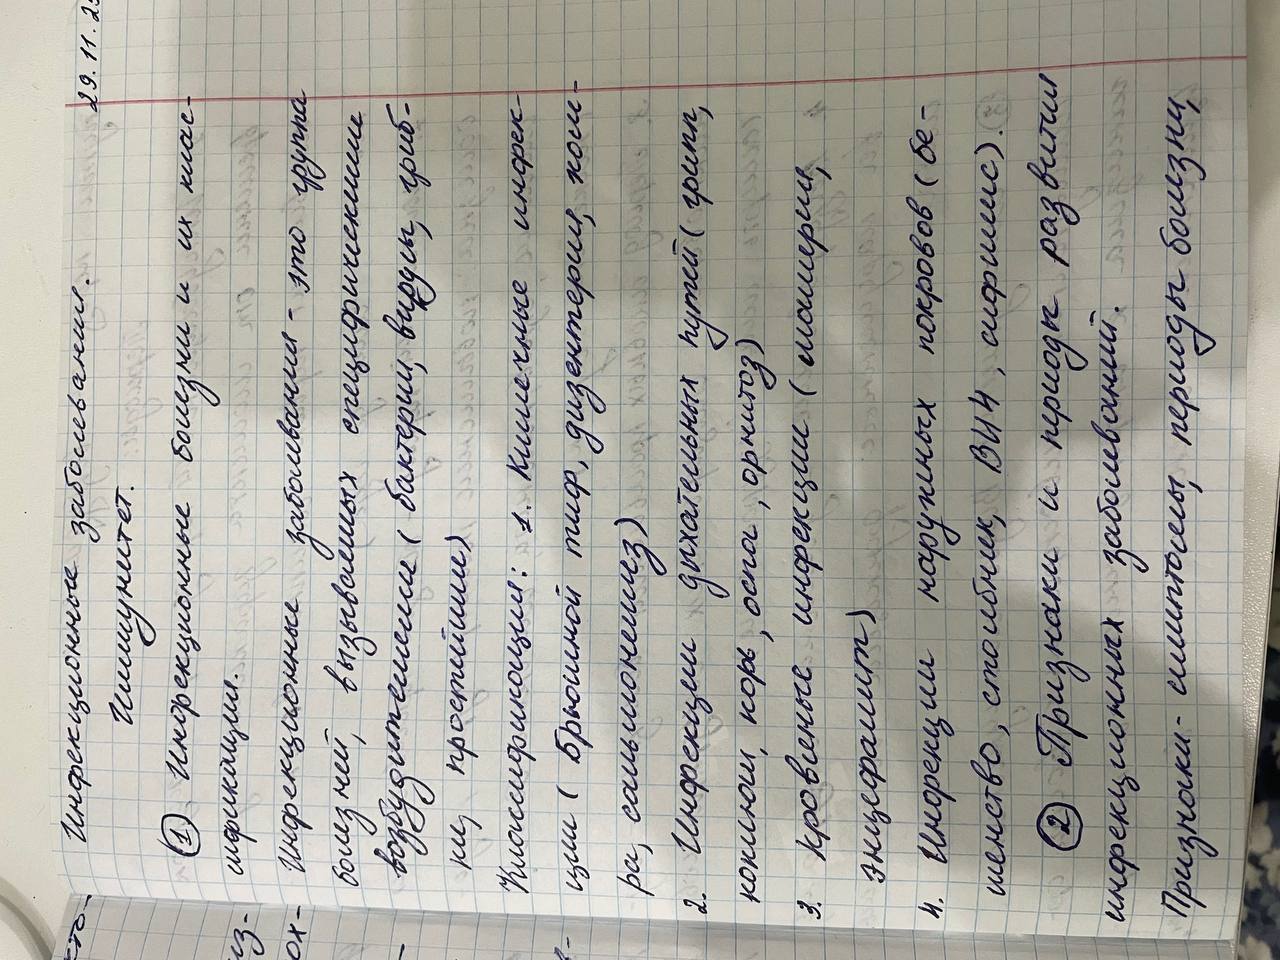 29.11.2
Инфекционные заболевания.
Иммунитет.
① Инфекционные болезни и их клас-
сификация.
Инфекционные заболевания - это группа
болезней, вызываемых специфическими
возбудителями (бактерии, вирусы, гриб-
ки, простейшие)
Классификация: 1. Кишечные инфек-
ции (Брюшной тиф, дизентерия, холе-
ра, сальмонеллез)
2. Инфекции дыхательных путей (грипп,
коклюш, корь, оспа, орнитоз)
3. Кровеные инфекции (малярия,
энцефалит)
4. Инфекции наружных покровов (бе-
шенство, столбняк, ВИЧ, сифилис).
② Признаки и периоды развития
инфекционных заболеваний.
Признаки - симптомы, периоды болезни,
сто-
из-
ох-